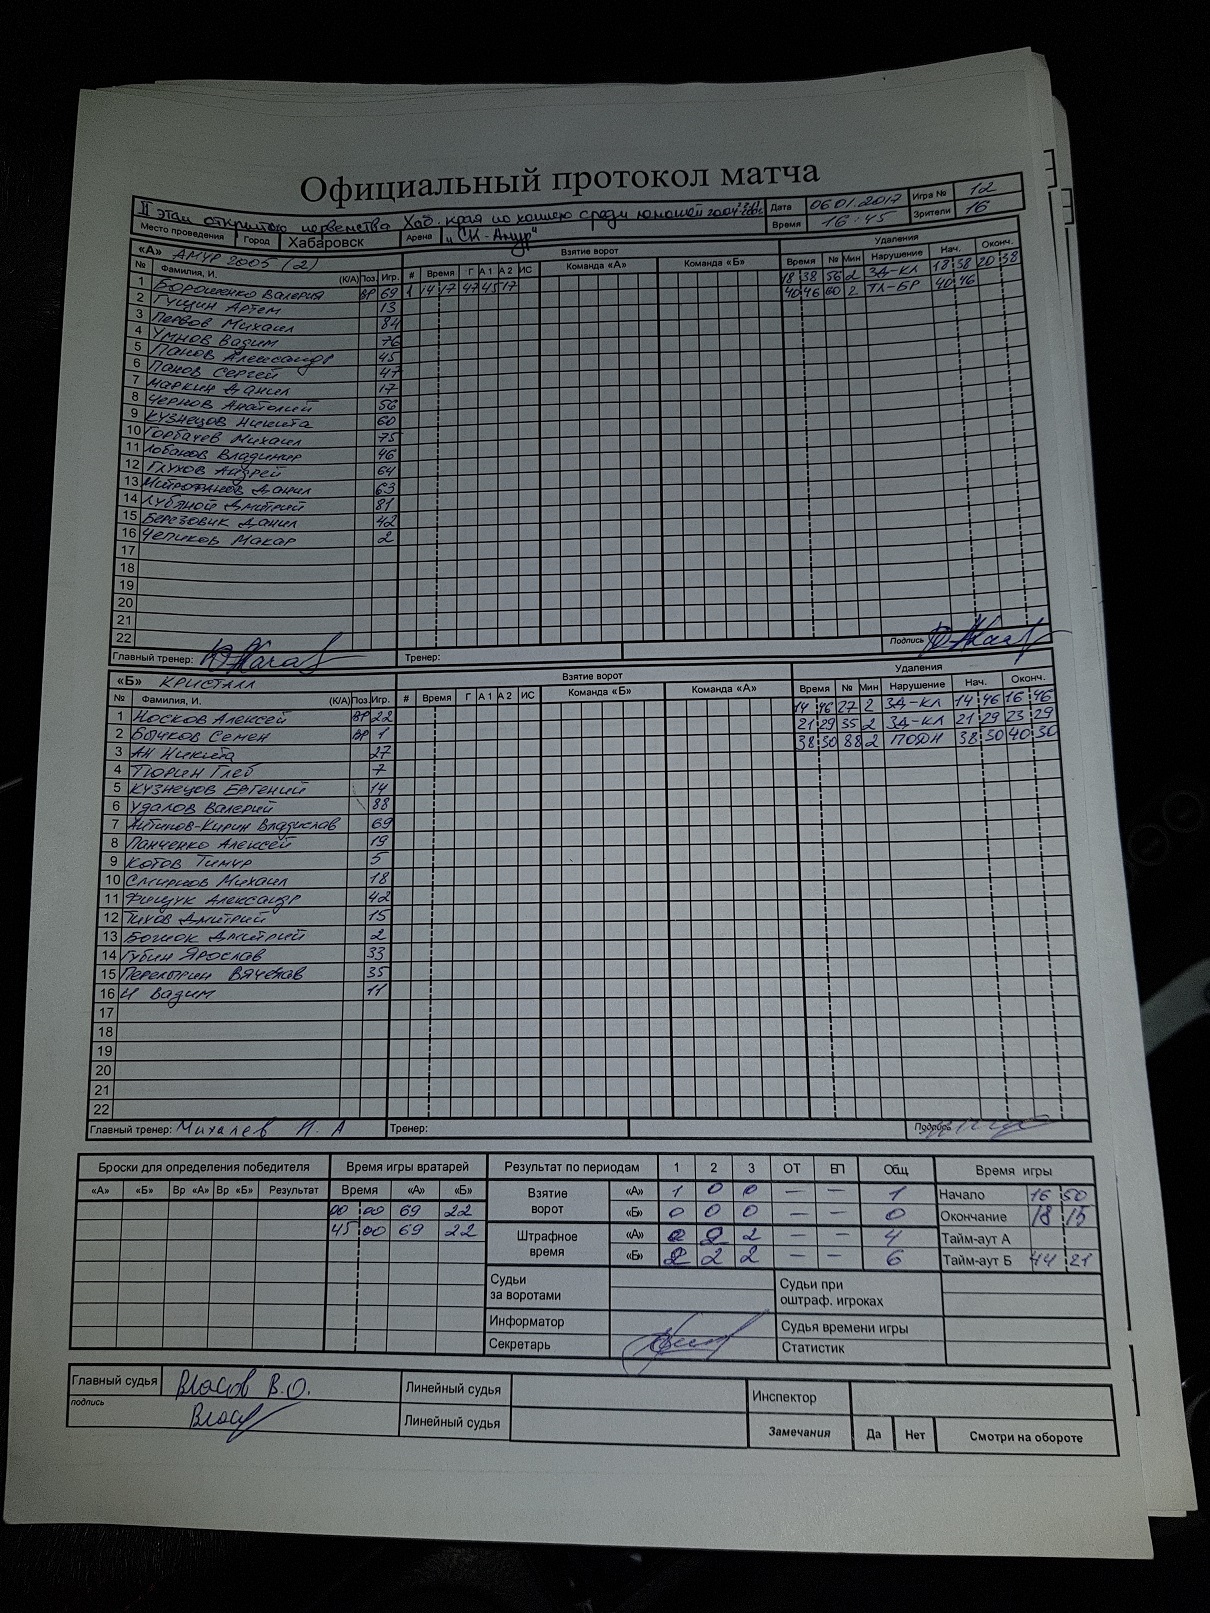 Официальный протокол матча
II этап открытого первенства Хаб. края по хоккею среди юношей Дата 06.01.2017 Игра № 12
Время 16:45 Зрители 16
Место проведения Город Хабаровск Арена "СК-Амур"
«А» АМУР 2005 (2) Взятие ворот Удаления
№ Фамилия, И. (К/А) Поз. Игр. # Время Г А1 А2 ИС Команда «А» Команда «Б» Время № Мин Нарушение Нач. Оконч.
1 Валерия ВР 69 1 14 17 47 45 17 18 38 56 2 ЗД-КЛ 18 38 20 38
2 Гущин Артем 13 40 46 60 2 ТЛ-БР 40 46
3 Первов Михаил 84
4 Умнов Вадим 76
5 Панов Александр 45
6 Панов Сергей 47
7 Маркин Данил 17
8 Чернов Анатолий 56
9 Кузнецов Никита 60
10 Горбачев Михаил 75
11 Лобанов Владимир 46
12 Глухов Андрей 64
13 Митрофанов Данил 63
14 Лубяной Дмитрий 81
15 Березовик Данил 42
16 Чепиков Макар 2
17
18
19
20
21
22
Главный тренер: Тренер: Подпись
«Б» КРИСТАЛЛ Взятие ворот Удаления
№ Фамилия, И. (К/А) Поз. Игр. # Время Г А1 А2 ИС Команда «Б» Команда «А» Время № Мин Нарушение Нач. Оконч.
1 Носков Алексей ВР 22 14 46 27 2 ЗД-КЛ 14 46 16 46
2 Бычков Семен ВР 1 21 29 35 2 ЗД-КЛ 21 29 23 29
3 Ан Никита 27 38 30 88 2 ПОДН 38 30 40 30
4 Тюрин Глеб 7
5 Кузнецов Евгений 14
6 Удалов Валерий 88
7 Владислав 69
8 Панченко Алексей 19
9 Котов Тимур 5
10 Смирнов Михаил 18
11 Фищук Александр 42
12 Тихов Дмитрий 15
13 Дмитрий 2
14 Губин Ярослав 33
15 Вячеслав 35
16 И Вадим 11
17
18
19
20
21
22
Главный тренер: Михалев И. А Тренер: Подпись
Броски для определения победителя Время игры вратарей Результат по периодам 1 2 3 ОТ БП Общ Время игры
«А» «Б» Вр «А» Вр «Б» Результат Время «А» «Б» Взятие ворот «А» 1 0 0 — — 1 Начало 16 50
00 00 69 22 «Б» 0 0 0 — — 0 Окончание 18 15
45 00 69 22 Штрафное время «А» 0 2 2 — — 4 Тайм-аут А
«Б» 2 2 2 — — 6 Тайм-аут Б 44 21
Судьи за воротами Судьи при оштраф. игроках
Информатор Судья времени игры
Секретарь Статистик
Главный судья Власов В.О. Линейный судья Инспектор
подпись Линейный судья Замечания Да Нет Смотри на обороте